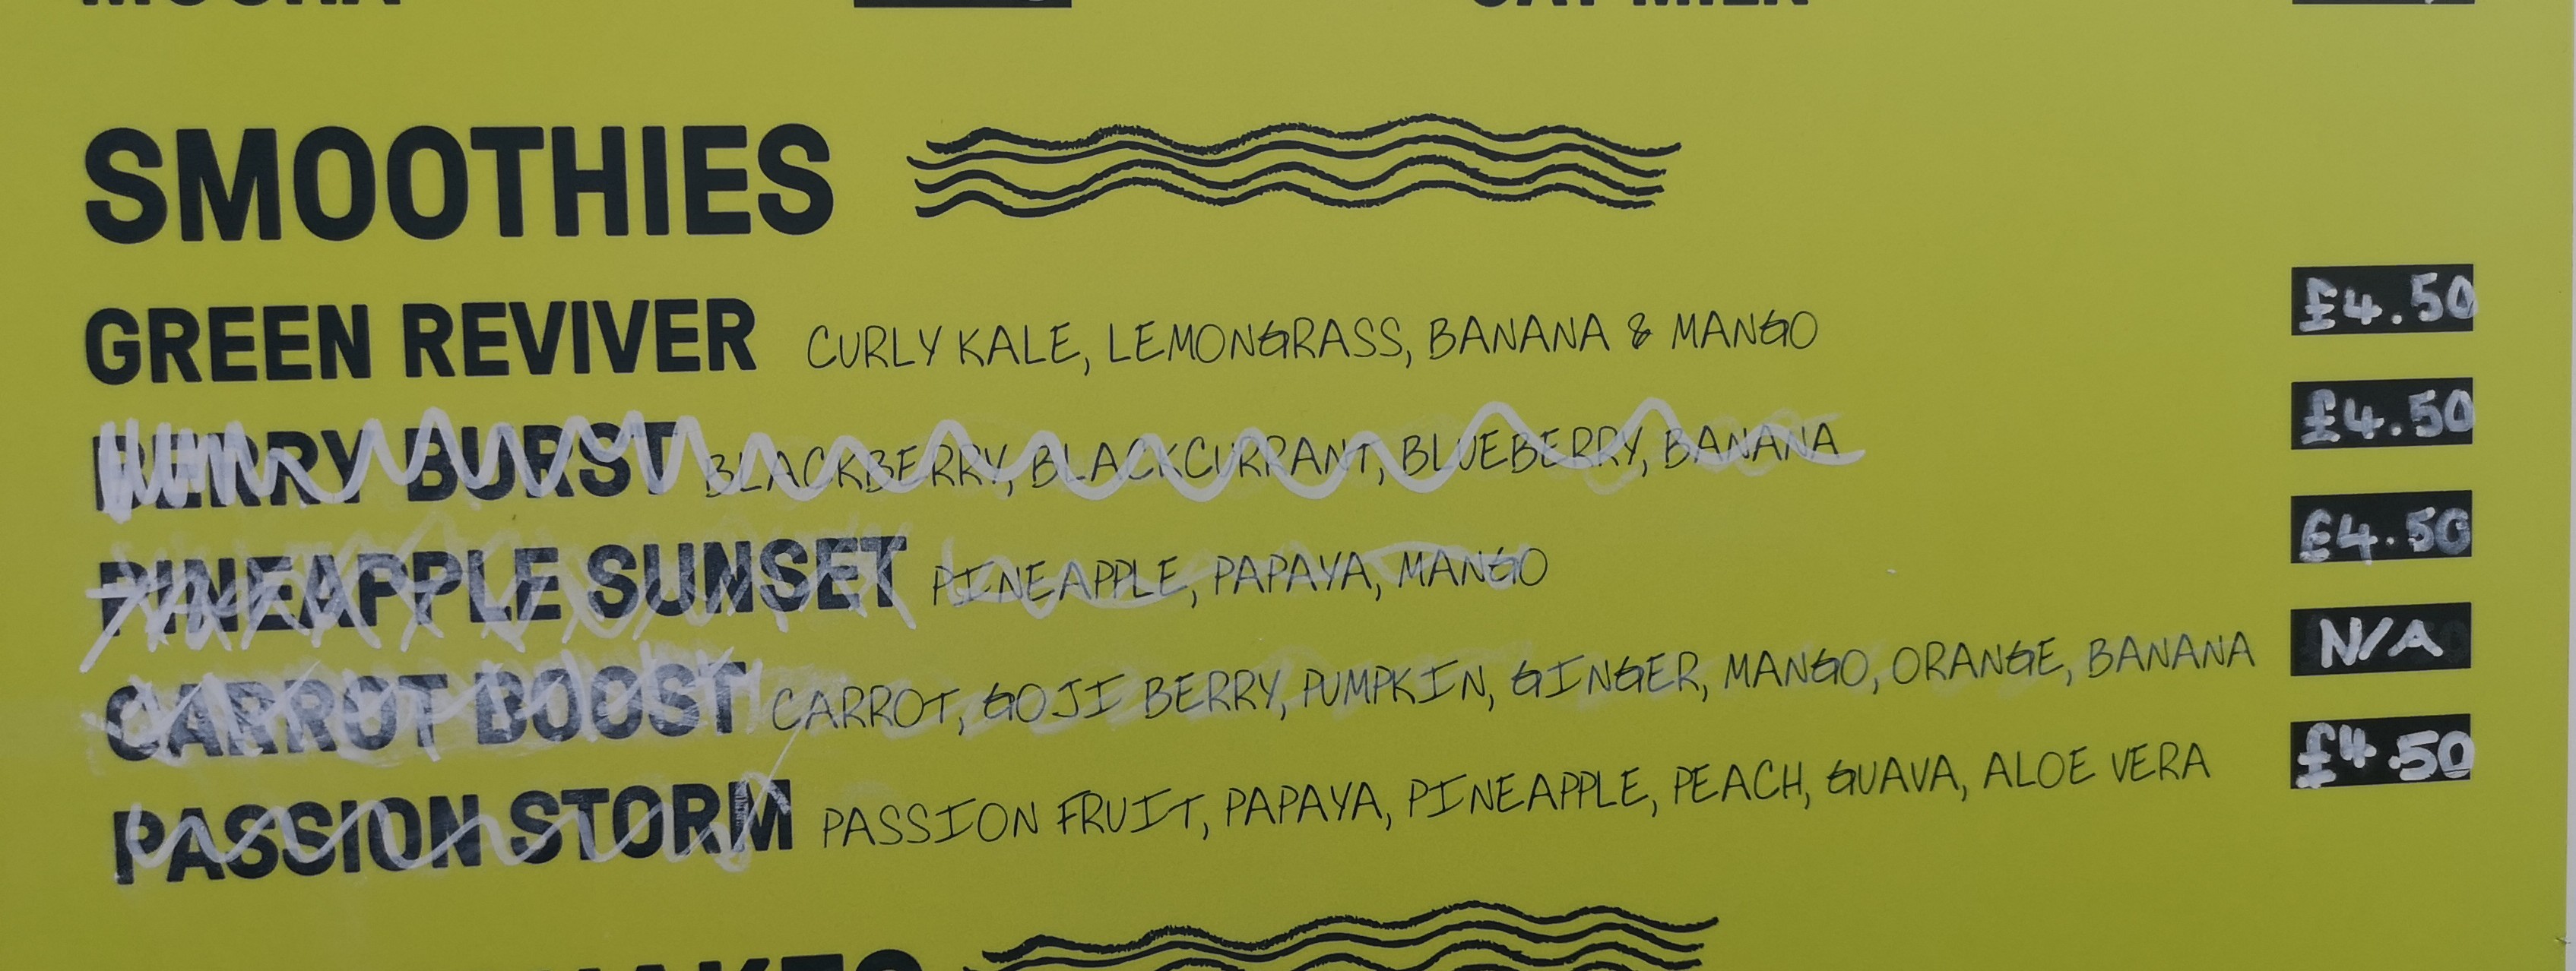 SMOOTHIES
GREEN REVIVER CURLY KALE, LEMONGRASS, BANANA & MANGO £4.50
BERRY BURST BLACKBERRY, BLACKCURRANT, BLUEBERRY, BANANA £4.50
PINEAPPLE SUNSET PINEAPPLE, PAPAYA, MANGO £4.50
CARROT BOOST CARROT, GOJI BERRY, PUMPKIN, GINGER, MANGO, ORANGE, BANANA N/A
PASSION STORM PASSION FRUIT, PAPAYA, PINEAPPLE, PEACH, GUAVA, ALOE VERA £4.50